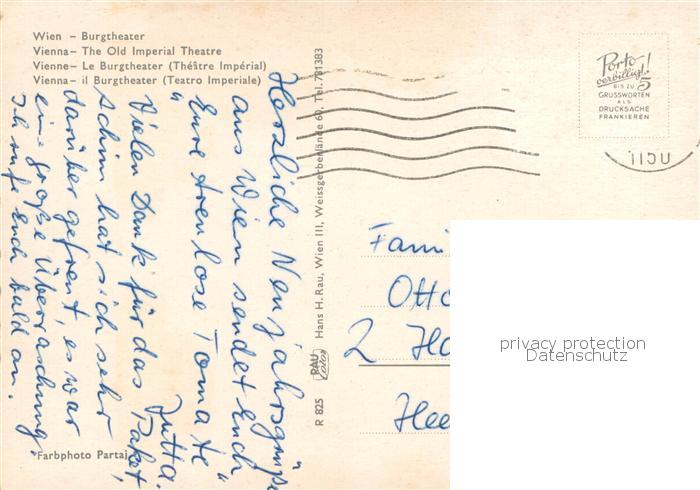 Wien – Burgtheater
Vienna – The Old Imperial Theatre
Vienne – Le Burgtheater (Théître Impérial)
Vienna – il Burgtheater (Teatro Imperiale)
Porto
verbilligt!
BIS ZU 5
GRUSSWORTEN
ALS
DRUCKSACHE
FRANKIEREN
Herzliche Neujahrsgrüße
aus Wien sendet Euch
"Eure treulose Tomate"
Jutta.
Vielen Dank für das Paket,
Achim hat sich sehr
darüber gefreut, es war
eine große Überraschung.
Ich rufe Euch bald an.
Hans H. Rau, Wien III, Weissgerberlände 60, Tel. 731383
RAU
R 825
Fami
Otto
2 Ha
Hee
Farbphoto Partaj
privacy protection
Datenschutz